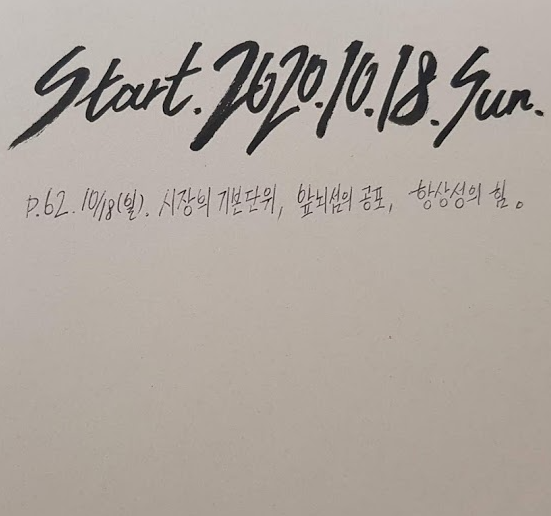 Start. 2020.10.18. Sun.
p.62. 10/18(일). 시장의 기본단위, 앞뇌섬의 공포, 항상성의 힘.